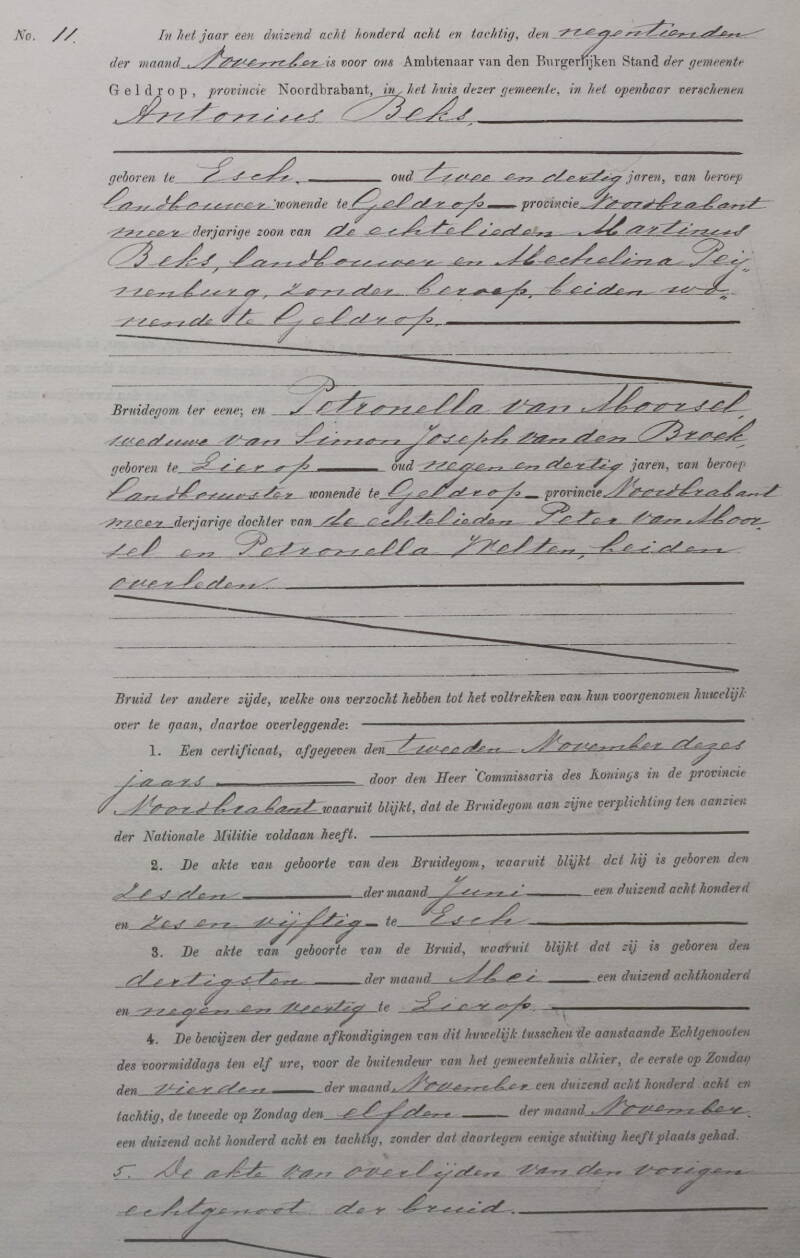 No. 11. In het jaar een duizend acht honderd acht en tachtig, den negentienden
der maand November is voor ons Ambtenaar van den Burgerlijken Stand der gemeente
Geldrop, provincie Noordbrabant, in het huis dezer gemeente, in het openbaar verschenen
Antonius Beks,
geboren te Esch. oud twee en dertig jaren, van beroep
landbouwer wonende te Geldrop provincie Noordbrabant
meer derjarige zoon van de echtelieden Martinus
Beks, landbouwer en Mechelina Pey„
nenburg, zonder beroep, beiden wo„
nende te Geldrop.
Bruidegom ter eene; en Petronella van Moorsel,
weduwe van Simon Joseph van den Broek,
geboren te Lierop oud negen en dertig jaren, van beroep
landbouwster wonende te Geldrop provincie Noordbrabant
meer derjarige dochter van de echtelieden Peter van Moor„
sel en Petronella Welten, beiden
overleden.
Bruid ter andere zijde, welke ons verzocht hebben tot het voltrekken van hun voorgenomen huwelijk
over te gaan, daartoe overleggende:
1. Een certificaat, afgegeven den tweeden November dezes
jaars door den Heer Commissaris des Konings in de provincie
Noordbrabant waaruit blijkt, dat de Bruidegom aan zijne verplichting ten aanzien
der Nationale Militie voldaan heeft.
2. De akte van geboorte van den Bruidegom, waaruit blijkt dat hij is geboren den
zesden der maand Juni een duizend acht honderd
en zes en vijftig te Esch
3. De akte van geboorte van de Bruid, waaruit blijkt dat zij is geboren den
dertigsten der maand Mei een duizend achthonderd
en negen en veertig te Lierop.
4. De bewijzen der gedane afkondigingen van dit huwelijk tusschen de aanstaande Echtgenooten
des voormiddags ten elf ure, voor de buitendeur van het gemeentehuis alhier, de eerste op Zondag
den vierden der maand November een duizend acht honderd acht en
tachtig, de tweede op Zondag den elfden der maand November
een duizend acht honderd acht en tachtig, zonder dat daartegen eenige stuiting heeft plaats gehad.
5. De akte van overlijden van den vorigen
echtgenoot der bruid.